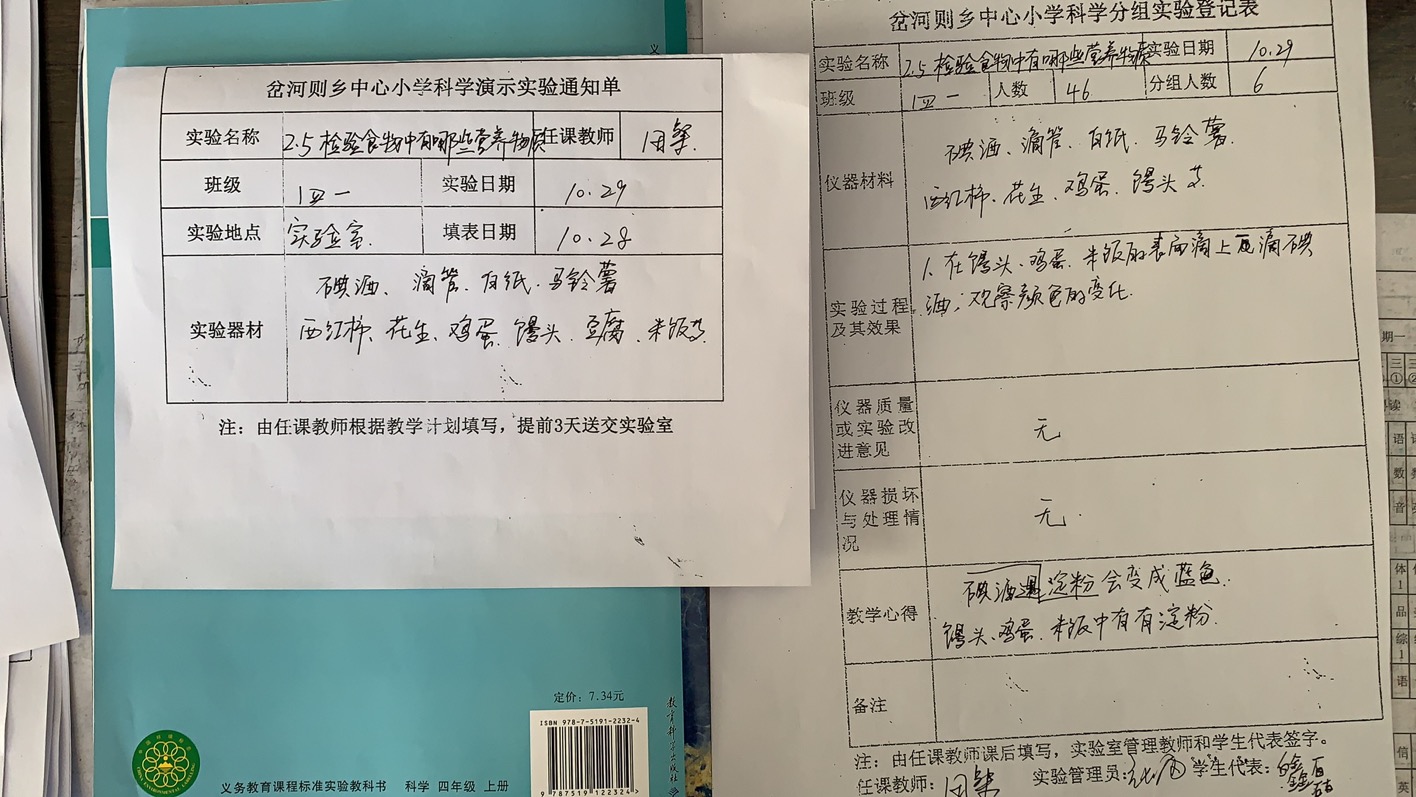 岔河则乡中心小学科学演示实验通知单
实验名称 2.5 检验食物中有哪些营养物质 任课教师
班级 四一 实验日期 10.29
实验地点 实验室. 填表日期 10.28
碘酒、滴管、白纸、马铃薯
实验器材 西红柿、花生、鸡蛋、馒头、豆腐、米饭等.
注：由任课教师根据教学计划填写，提前3天送交实验室
定价：7.34元
ISBN 978-7-5191-2232-4
9 787519 122324 >
义务教育课程标准实验教科书 科学 四年级 上册
教育科学出版社
岔河则乡中心小学科学分组实验登记表
实验名称 2.5 检验食物中有哪些营养物质 实验日期 10.29
班级 四一 人数 46 分组人数 6
碘酒、滴管、白纸、马铃薯.
仪器材料 西红柿、花生、鸡蛋、馒头等.
1、在馒头、鸡蛋、米饭的表面滴上几滴碘
实验过程及其效果 酒；观察颜色的变化.
仪器质量或实验改进意见 无
仪器损坏与处理情况 无.
碘酒遇淀粉会变成蓝色.
教学心得 馒头、鸡蛋、米饭中有有淀粉.
备注
注：由任课教师课后填写，实验室管理教师和学生代表签字。
任课教师： 实验管理员： 学生代表：